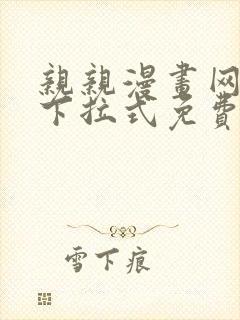 親親漫畫网
下拉式免費
雪下痕